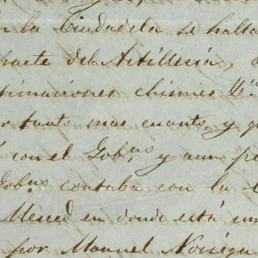 n la Ciudadela se halla
parte del Artilleria,
timaciones chismes
r tanto mas cuanto, y q
con el Gob.no y aun pe
Gob.no contaba con la
Merced en donde está un
por Manuel Norieg